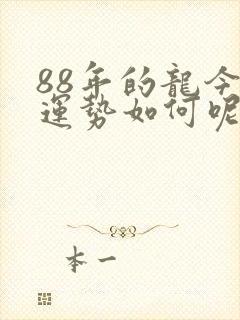 88年的龍今
運勢如何呢
本一